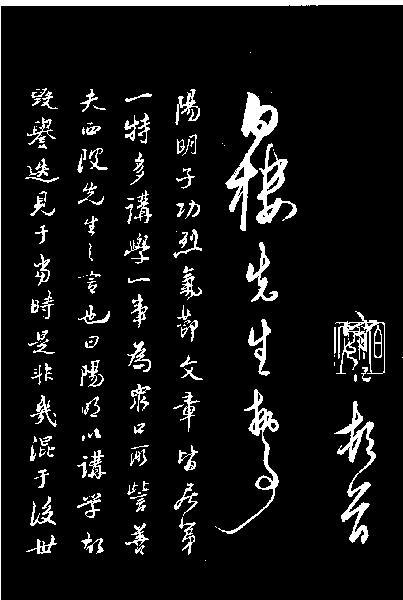 頓首
白樓先生執事
陽明子功烈氣節文章皆居第
一特多講學一事為眾口所訾善
夫西陂先生之言也曰陽明以講学故
毀譽迭見于當時是非幾混于後世